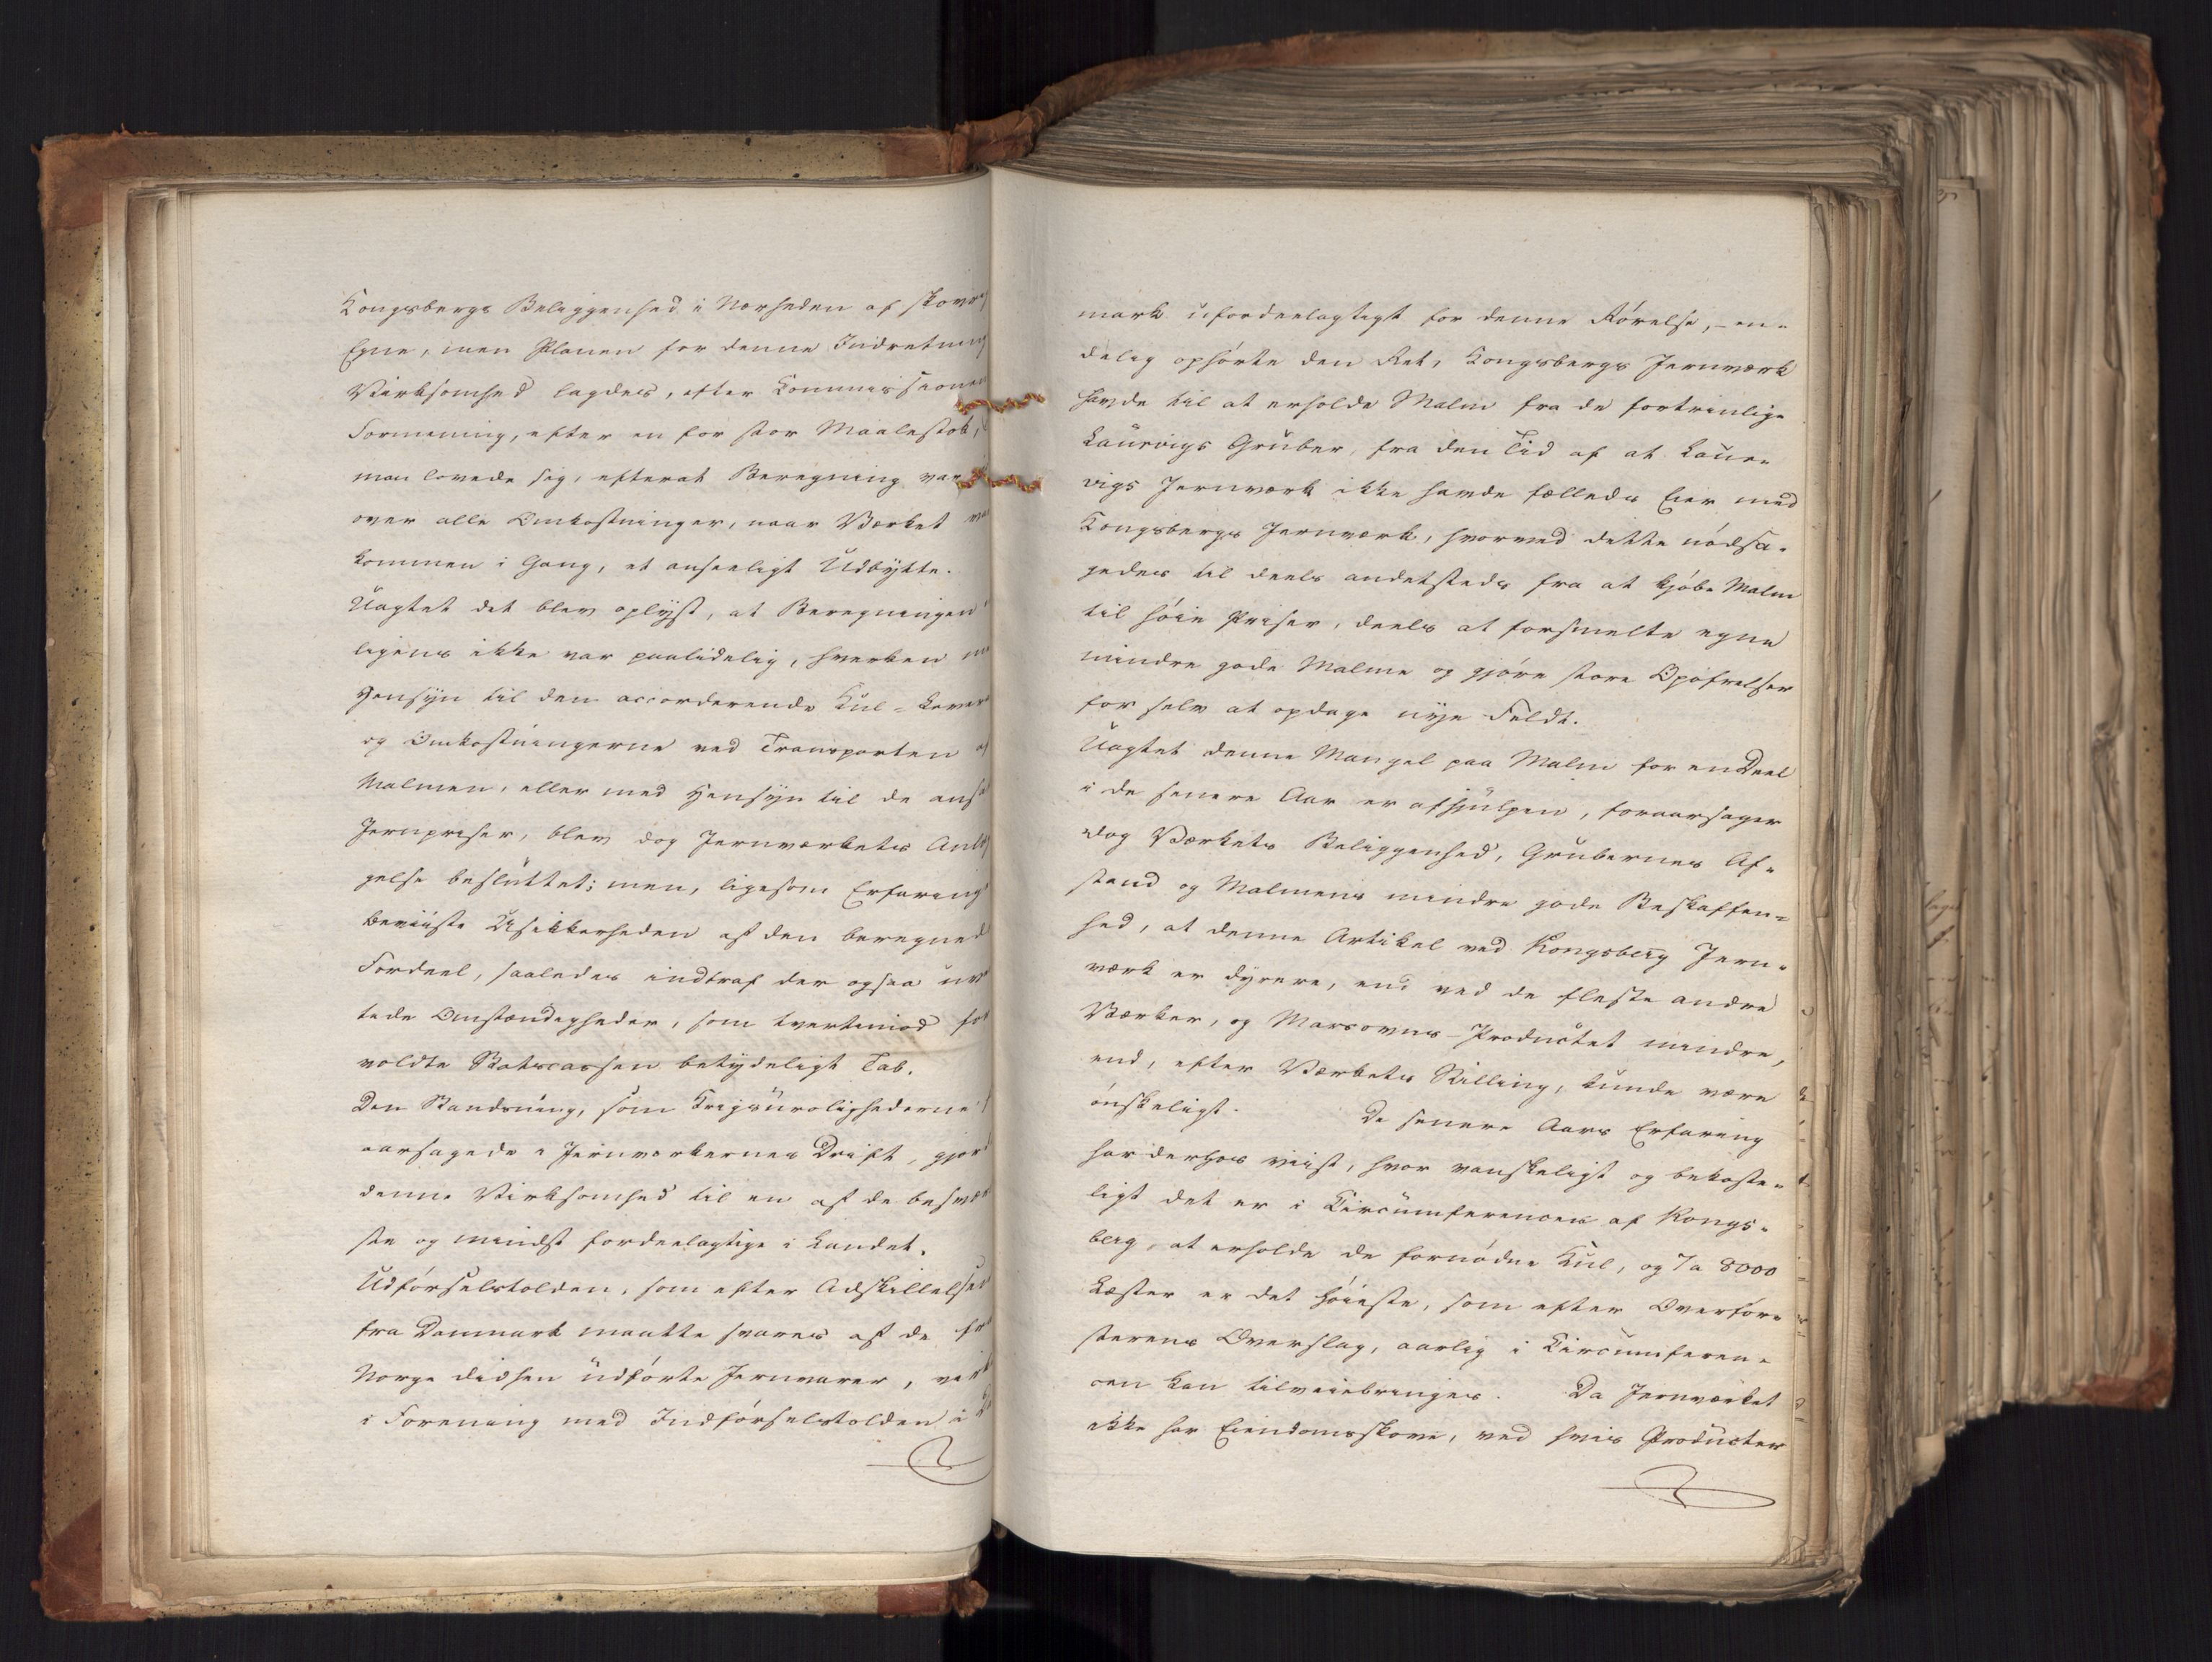 Kongsbergs Beliggenhed i Nærheden af skovrig
Egne, men Planen for denne Indretning
Virksomhed lagdes, efter Commissionen
Formening, efter en for stor Maalestok,
man lovede sig, efterat Beregning var
over alle Omkostninger, naar Værket va
kommen i Gang, et anseeligt Udbytte.
Uagtet det blev oplyst, at Beregningen
ligens ikke var paalidelig, hverken me
Hensyn til den accorderende Kul-Lever
og Omkostningerne ved Transporten af
Malmen, eller med Hensyn til de ansa
Jernpriser, blev dog Jernværkets Anlæ
gelse besluttet; men, ligesom Erfaring
beviiste Usikkerheden af den beregned
Fordeel, saaledes indtraf der ogsaa uve
tede Omstændigheder, som tvertimod for
voldte Statscassen betydeligt Tab.
Den Standsning, som Krigsurolighederne
aarsagede i Jernværkernes Drift, gjord
denne Virksomhed til en af de besvær
ste og mindst fordeelagtige i Landet.
Udførselstolden, som efter Adskillelsen
fra Danmark maatte svares af de fra
Norge didhen udførte Jernvarer, virk
i Forening med Indførselstolden i
mark ufordeelagtigt for denne Rørelse, – en-
delig ophørte den Ret, Kongsbergs Jernværk
havde til at erholde Malm fra de fortrinlige
Laurvigs Gruber, fra den Tid af at Laur-
vigs Jernværk ikke havde fælleds Eier med
Kongsbergs Jernværk, hvorved dette nødsa-
gedes til deels andetsteds fra at kjøbe Malm
til høie Priser, deels at forsmelte egne
mindre gode Malme og gjøre store Opofrelser
for selv at opdage nye Feldt.
Uagtet denne Mangel paa Malm for en Deel
i de senere Aar er afhjulpen, foraarsager
dog Værkets Beliggenhed, Grubernes Af-
stand og Malmens mindre gode Beskaffen-
hed, at denne Artikel ved Kongsberg Jern-
værk er dyrere, end ved de fleste andre
Værker, og Masovns-Productet mindre,
end, efter Værkets Stilling, kunde være
ønskeligt. De senere Aars Erfaring
har derhos viist, hvor vanskeligt og bekoste-
ligt det er i Circumferencen af Kongs-
berg, at erholde de fornødne Kul, og 7 a 8000
Læster er det høieste, som efter Overfør-
sterens Overslag, aarlig i Circumferen-
cen kan tilveiebringes. Da Jernværket
ikke har Eiendomsskove, ved hvis Producter